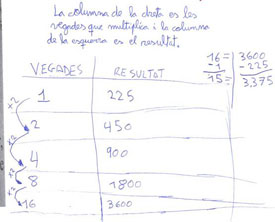 La columna de la dreta es les
vegades que multiplica i la columna
de la esquerra es el resultat.
VEGADES RESULTAT
1 225
x2
2 450
x2
4 900
x2
8 1800
x2
16 3600
16= 3600
-1 -225
15= 3,375